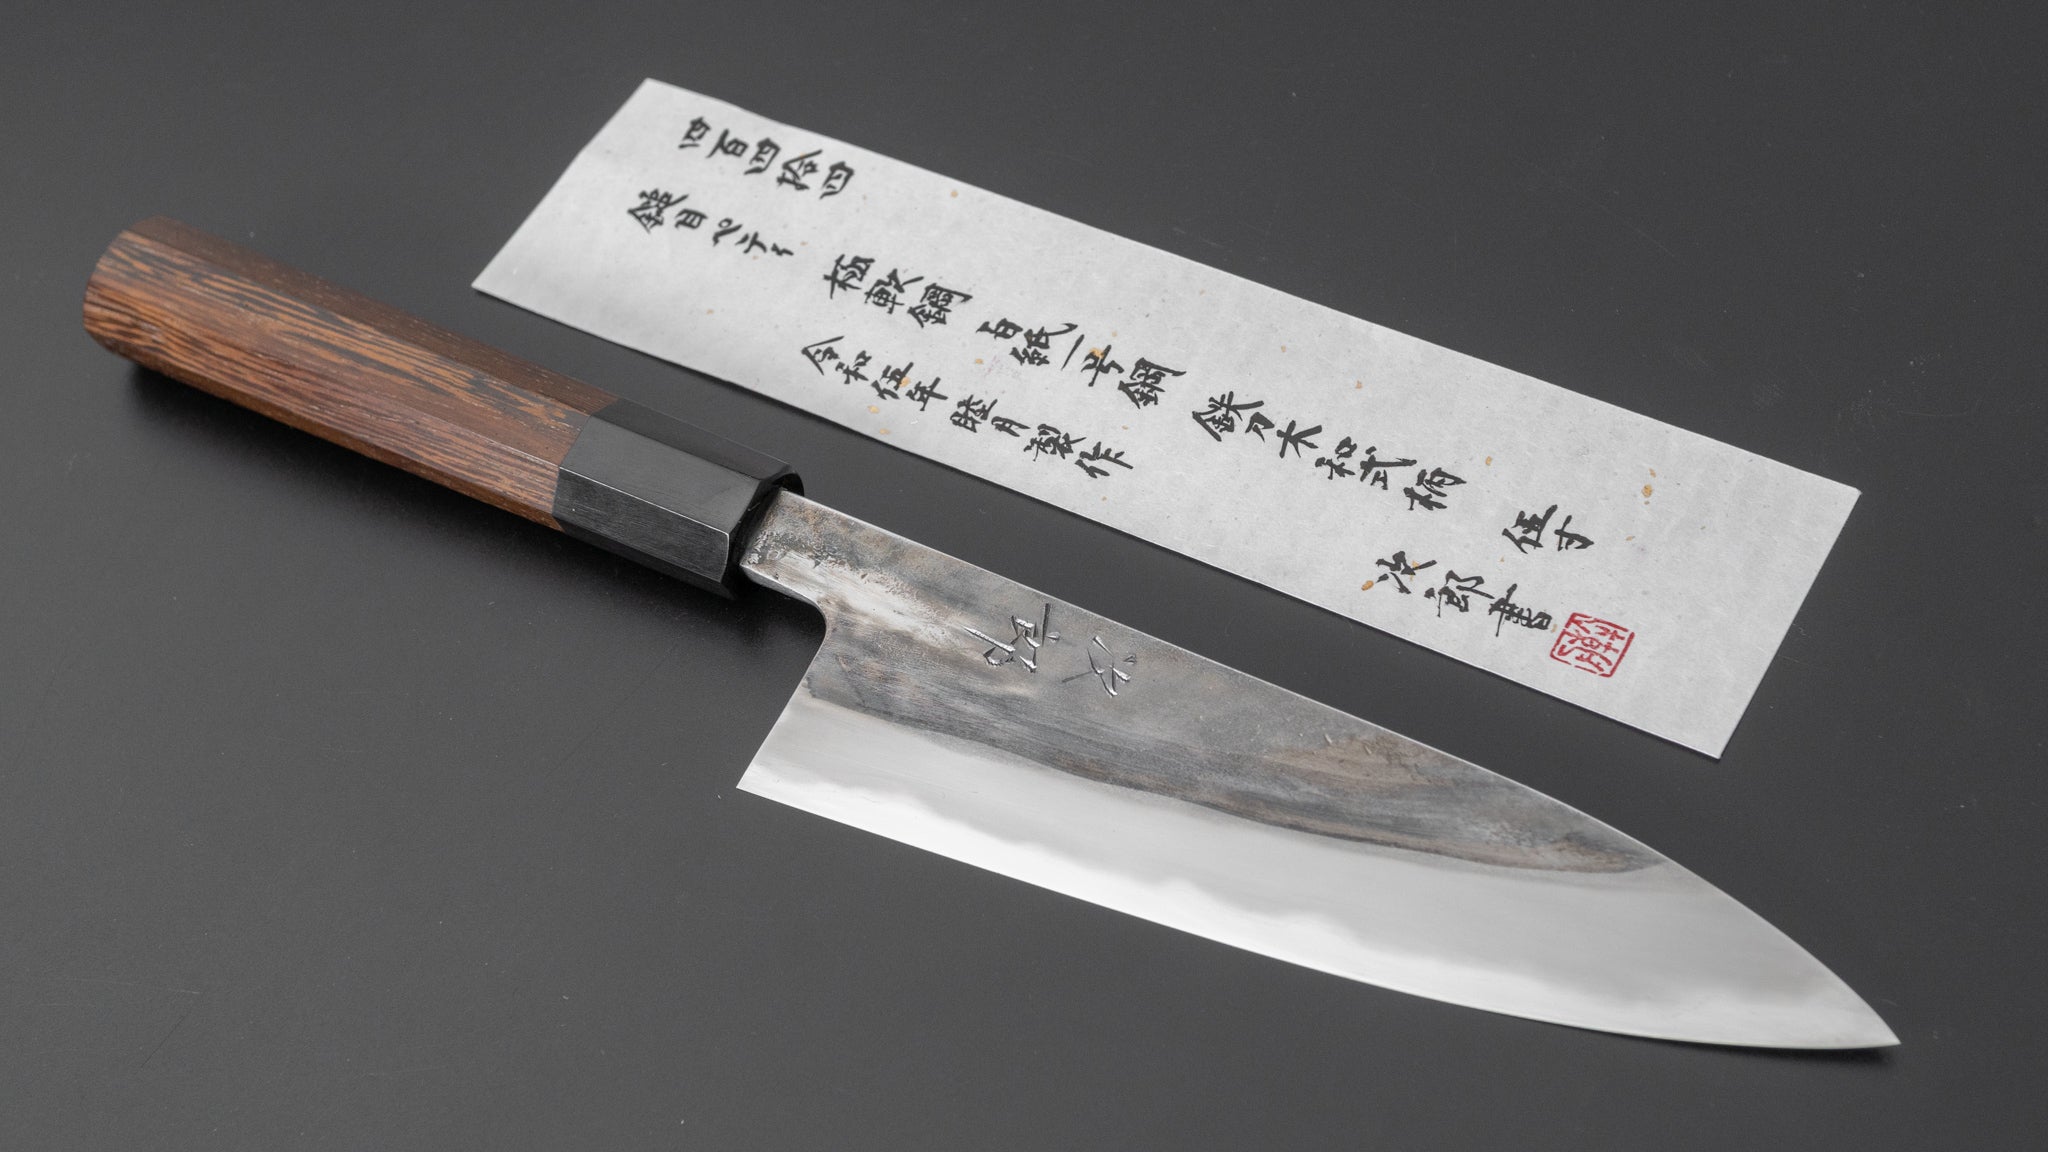 四百四拾四
鎚目ペティ 極軟鋼 白紙一号鋼 鉄刀木和式柄 伍寸
令和伍年睦月製作 次郎書